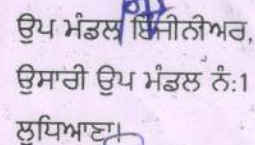 ਉਪ ਮੰਡਲ ਇੰਜੀਨੀਅਰ,
ਉਸਾਰੀ ਉਪ ਮੰਡਲ ਨੰ:1
ਲੁਧਿਆਣਾ।